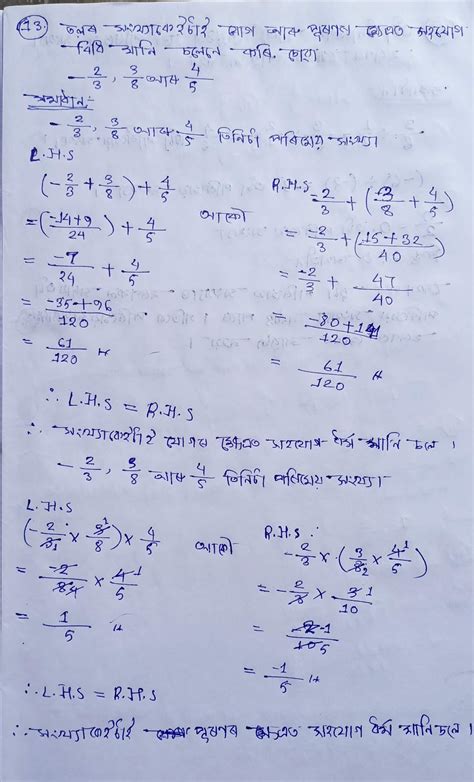 (13) তলৰ সংখ্যাকেইটাই যোগ আৰু পূৰণৰ ক্ষেত্ৰত সহযোগ
বিধি মানি চলেনে কৰি চোৱা
-2/3, 3/8 আৰু 4/5
সমাধান:-
-2/3, 3/8 আৰু 4/5 তিনিটা পৰিমেয় সংখ্যা
L.H.S
(-2/3 + 3/8) + 4/5
= (-14+9/24) + -4/5
= -7/24 + 4/5
= -35+96/120
= 61/120
আকৌ
R.H.S = -2/3 + (3/8 + 4/5)
= -2/3 + (15+32/40)
= -2/3 + 47/40
= -80+141/120
= 61/120
∴ L.H.S = R.H.S
∴ সংখ্যাকেইটাই যোগৰ ক্ষেত্ৰত সহযোগ ধৰ্ম মানি চলে।
-2/3, 3/8 আৰু 4/5 তিনিটা পৰিমেয় সংখ্যা।
L.H.S
(-2/3 × 3/8) × 4/5
= -2/84 × 4/5
= 1/5
আকৌ
R.H.S :
-2/3 × (3/8 × 4/5)
= -2/3 × 3/10
= -2/10
= -1/5
∴ L.H.S = R.H.S
∴ সংখ্যাকেইটাই পূৰণৰ ক্ষেত্ৰত সহযোগ ধৰ্ম মানি চলে।